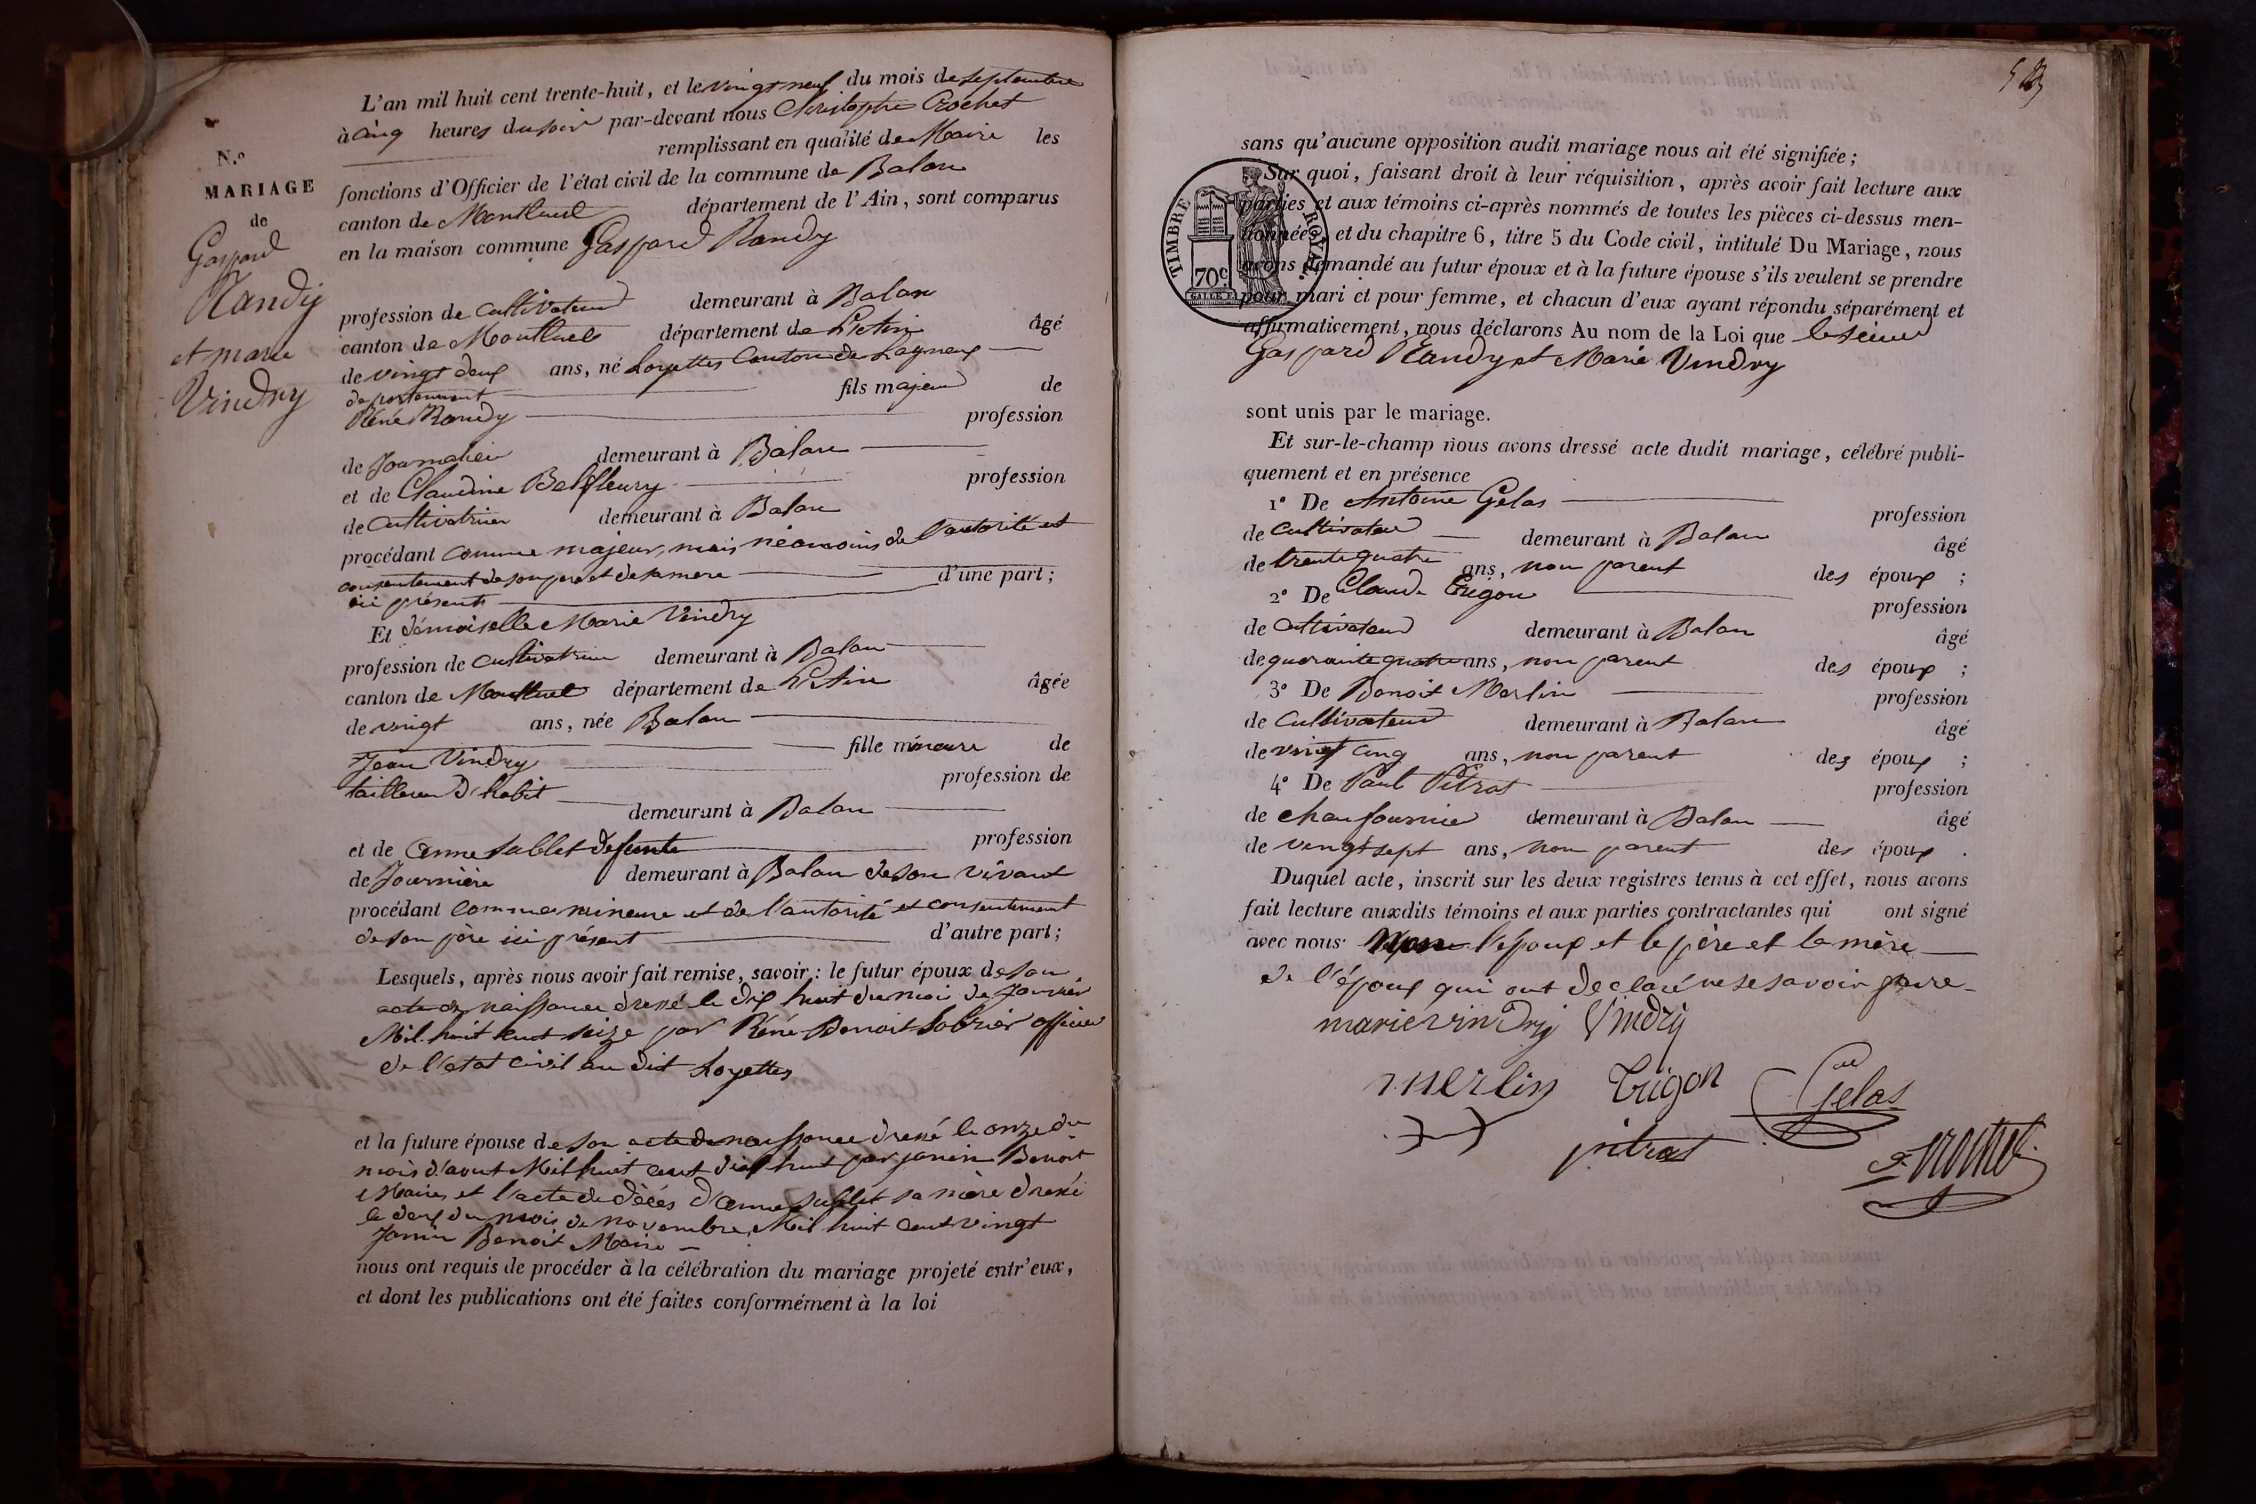 N.º
MARIAGE
de
Gaspard
Randy
et marie
Vindry
L'an mil huit cent trente-huit, et le vingt neuf du mois de septembre
à cinq heures du soir par-devant nous Christophe Crochet
remplissant en qualité de Maire les
fonctions d'Officier de l'état civil de la commune de Balan
canton de Montluel département de l'Ain, sont comparus
en la maison commune Gaspard Randy
profession de cultivateur demeurant à Balan
canton de Montluel département de L'Ain âgé
de vingt deux ans, né Loyettes Canton de Lagneux
departement fils majeur de
Réné Randy profession
de Journalier demeurant à Balan
et de Claudine Belfleury profession
de Cultivatrice demeurant à Balan
procédant comme majeur, mais néomoins de l'autorité et
consentement de son pere et de sa mere d'une part;
ici présents
Et démoiselle Marie Vindry
profession de cultivatrice demeurant à Balan
canton de Montluel département de L'Ain âgée
de vingt ans, née Balan
fille mineure de
Jean Vindry profession de
tailleur d'habit demeurant à Balan
et de Anne Sablet défunte profession
de Journière demeurant à Balan de son vivant
procédant comme mineure et de l'autorité et consentement
de son père ici présent d'autre part;
Lesquels, après nous avoir fait remise, savoir: le futur époux de son
acte de naissance dressé le dix huit du moi de Janvier
Mil huit cent seize par Réné Benoit officier
de l'état civil au dit Loyettes
et la future épouse de son acte de naissance dressé le onze du
mois d'avout Mil huit cent dix huit par janin Benoit
Maire, et l'acte de décès d'anne Sablet sa mère dressé
le deux du mois de novembre Mil huit cent vingt
Janin Benoit Maire
nous ont requis de procéder à la célébration du mariage projeté entr'eux,
et dont les publications ont été faites conformément à la loi
sans qu'aucune opposition audit mariage nous ait été signifiée;
TIMBRE ROYAL
70c
Sur quoi, faisant droit à leur réquisition, après avoir fait lecture aux
parties et aux témoins ci-après nommés de toutes les pièces ci-dessus men-
tionnées, et du chapitre 6, titre 5 du Code civil, intitulé Du Mariage, nous
avons demandé au futur époux et à la future épouse s'ils veulent se prendre
pour mari et pour femme, et chacun d'eux ayant répondu séparément et
affirmativement, nous déclarons Au nom de la Loi que le sieur
Gaspard Randy et Marie Vindry
sont unis par le mariage.
Et sur-le-champ nous avons dressé acte dudit mariage, célébré publi-
quement et en présence
1º De Antoine Gelas profession
de Cultivateur demeurant à Balan âgé
de trente quatre ans, non parent des époux;
2º De Claude Trigon profession
de cultivateur demeurant à Balan âgé
de quarante quatre ans, non parent des époux;
3º De Benoit Merlin profession
de Cultivateur demeurant à Balan âgé
de vingt cinq ans, non parent des époux;
4º De Paul Pitrat profession
de chaufournier demeurant à Balan âgé
de vingt sept ans, non parent des époux.
Duquel acte, inscrit sur les deux registres tenus à cet effet, nous avons
fait lecture auxdits témoins et aux parties contractantes qui ont signé
avec nous l'époux et le père et la mère
de l'époux qui ont declaré ne se savoir faire
marie vindry Vindry
merlin trigon Gelas
pitrat
Crochet